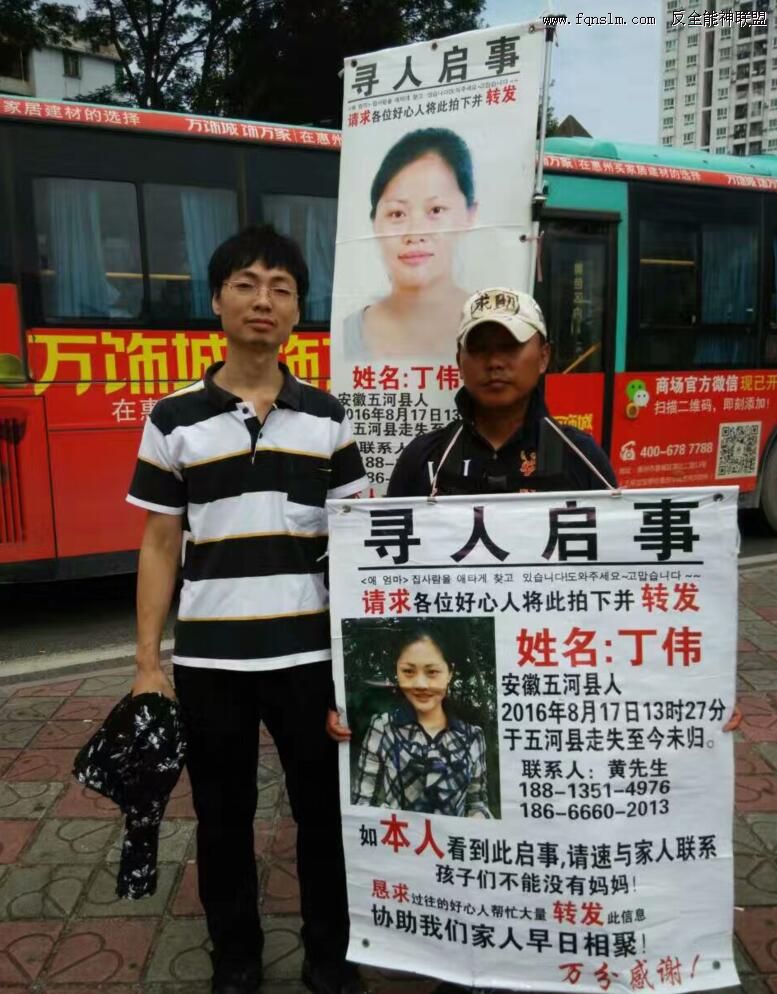 www.fqnslm.com 反全能神联盟
家居建材的选择 万饰城 饰万家
在惠州买家居建材的选择 万饰城
万饰城 饰万
在惠
万饰城
商场官方微信现已开
扫描二维码，即刻添加！
400-678 7788
寻人启事
请求各位好心人将此拍下并 转发
姓名:丁伟
安徽五河县人
2016年8月17日13
五河县走失至
联系人
188-1
186-
求助
寻人启事
<애 엄마> 집사람을 애타게 찾고 있습니다!도와주세요~고맙습니다 ~~
请求各位好心人将此拍下并 转发
姓名:丁伟
安徽五河县人
2016年8月17日13时27分
于五河县走失至今未归。
联系人: 黄先生
188-1351-4976
186-6660-2013
如本人看到此启事,请速与家人联系
孩子们不能没有妈妈!
恳求过往的好心人帮忙大量 转发 此信息
协助我们家人早日相聚!
万分感谢!